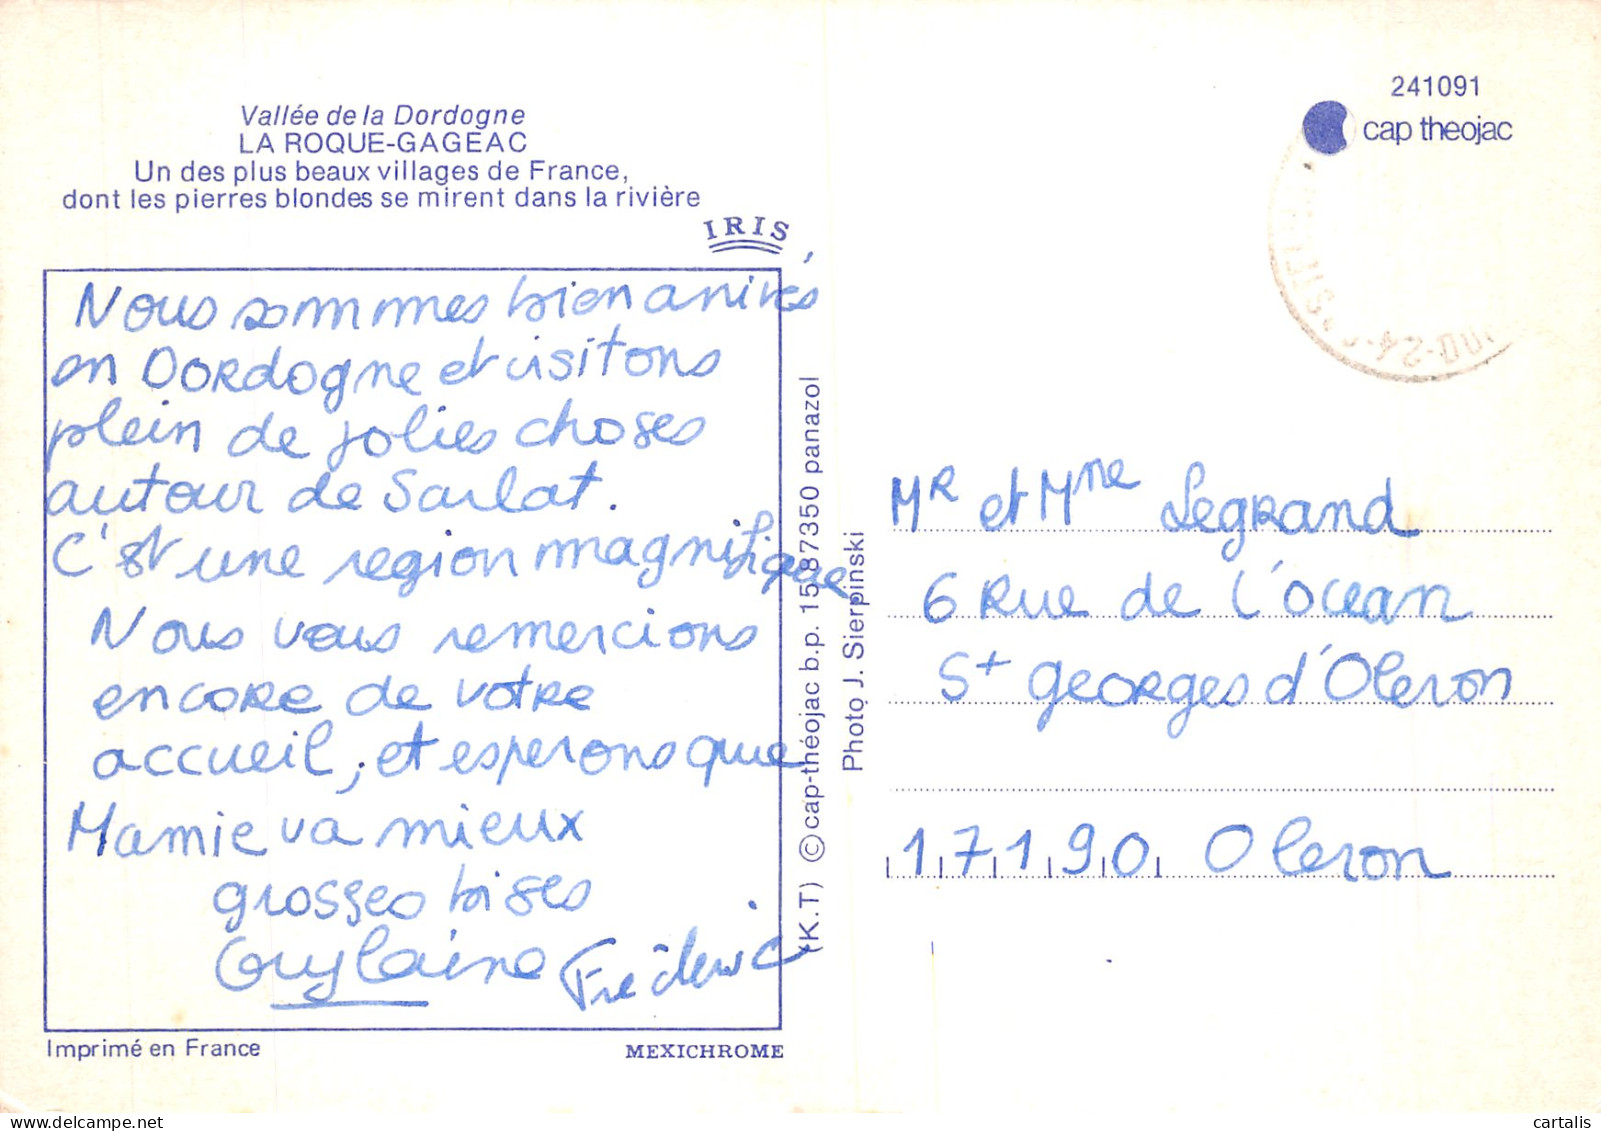 Vallée de la Dordogne
LA ROQUE-GAGEAC
Un des plus beaux villages de France,
dont les pierres blondes se mirent dans la rivière
IRIS
Nous sommes bien arrivés
en Dordogne et visitons
plein de jolies choses
autour de Sarlat.
C'est une region magnifique
Nous vous remercions
encore de votre
accueil, et esperons que
Mamie va mieux
grosses bises
Guylaine Frédéric
Imprimé en France
MEXICHROME
(K.T) © cap-théojac b.p. 15 87350 panazol
Photo J. Sierpinski
241091
cap theojac
-24-
Mr et Mme Legrand
6 Rue de l'ocean
St georges d'Oleron
17190 Oleron
cartalis